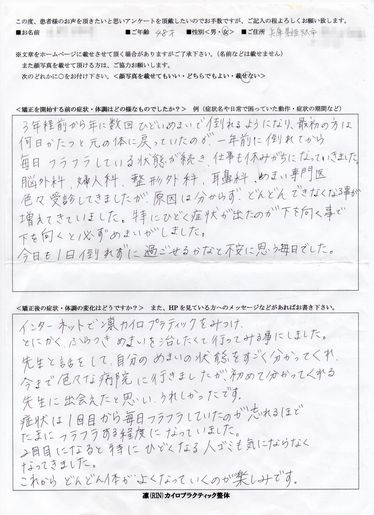 この度、患者様のお声を頂きたいと思いアンケートを頂戴したいのでお手数ですが、ご記入の程よろしくお願い致します。
■お名前 ■ご年齢 48才 ■性別<男・女> ■ご住所
※文章をホームページに載せさせて頂く場合がありますがご了承下さい。(名前などは載せません)
また顔写真を載せて頂ける方は、ご協力お願いします。
次のどれかに○をお付け下さい。<顔写真を載せてもいい・どちらでもよい・載せない>
<矯正を開始する前の症状・体調はどの様なものでしたか?> 例(症状名や日常で困っていた動作・症状の期間など)
3年程前から年に数回ひどいめまいで倒れるようになり、最初の方は
何日かたつと元の体に戻っていたのが一年前に倒れてから
毎日フラフラしている状態が続き仕事も休みがちになっていきました。
脳外科、婦人科、整形外科、耳鼻科、めまい専門医
色々受診してきましたが原因は分からず、どんどんできなくなる事が
増えてきていました。特にひどく症状が出たのが下を向く事で
下を向くと必ずめまいがしました。
今日も1日倒れずに過ごせるかなと不安に思う毎日でした。
<矯正後の症状・体調の変化はどうですか?> また、HPを見ている方へのメッセージなどがあればお書き下さい。
インターネットで凛カイロプラティックをみつけ、
とにかくふらつきめまいを治したくて行ってみる事にしました。
先生と話をして、自分のめまいの状態をすごく分かってくれ
今まで色々な病院に行きましたが初めて分かってくれる
先生に出会えたと思い、うれしかったです。
症状は1回目から毎日フラフラしていたのが忘れるほど
たまにフラフラする程度になっていました。
2月目になると特にひどくなる人ごみも気にならなく
なってきました。
これからどんどん体がよくなっていくのが楽しみです。
凛(RIN)カイロプラクティック整体